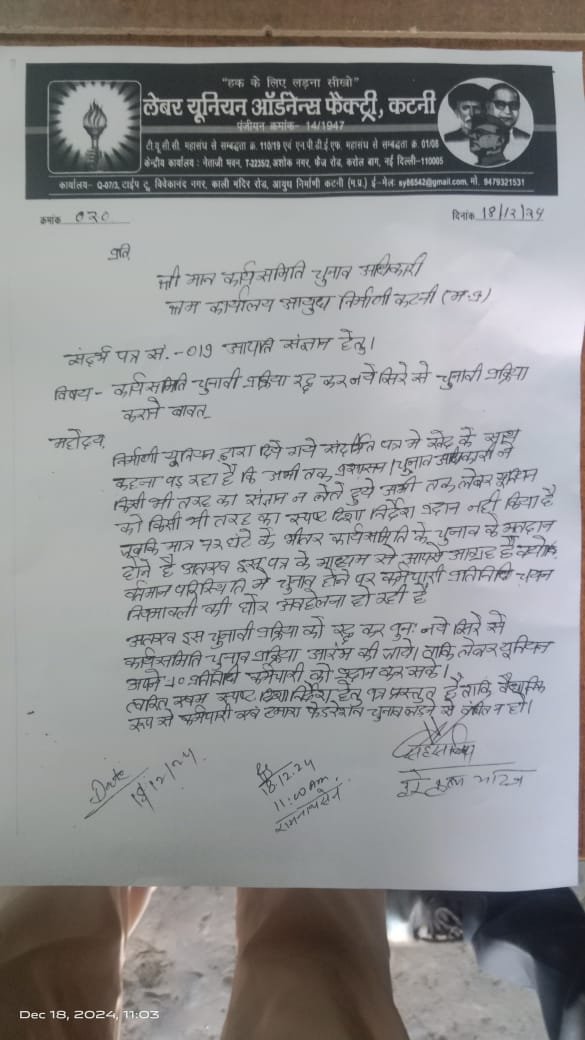 "हक के लिए लड़ना सीखो"
लेबर यूनियन ऑर्डनेन्स फैक्ट्री, कटनी
पंजीयन क्रमांक- 14/1947
टी.यू.सी.सी. महासंघ से सम्बद्धता क्र. 110/19 एवं एन.पी.डी.ई.एफ. महासंघ से सम्बद्धता क्र. 01/08
केन्द्रीय कार्यालय : नेताजी भवन, T-2235/2, अशोक नगर, फैज रोड, करोल बाग, नई दिल्ली-110005
कार्यालय- Q-07/3, टाईप टू, विवेकानंद नगर, काली मंदिर रोड, आयुध निर्माणी कटनी (म.प्र.) ई-मेल: sy86542@gmail.com, मो. 9479321531
क्रमांक 020 दिनांक 18/12/24
प्रति
श्री मान कार्य समिति चुनाव अधिकारी
श्रम कार्यालय आयुध निर्माणी कटनी (म.प्र)
संदर्भ पत्र सं.-019 आपत्ति संज्ञान हेतु।
विषय - कार्यसमिति चुनावी प्रक्रिया रद्द कर नये सिरे से चुनावी प्रक्रिया
कराने बावत्
महोदय,
निर्माणी यूनियन द्वारा दिये गये संदर्भित पत्र मे खेद के साथ
कहना पड़ रहा है कि अभी तक प्रशासन/चुनाव अधिकारी ने
किसी भी तरह का संज्ञान न लेते हुये अभी तक लेबर यूनियन
को किसी भी तरह का स्पष्ट दिशा निर्देश प्रदान नही किया है
जबकि मात्र 72 घंटे के भीतर कार्यसमिति के चुनाव के मतदान
होने है अतएव इस पत्र के माध्यम से आपसे आग्रह है क्योंकि
वर्तमान परिस्थिति मे चुनाव होने पर कर्मचारी प्रतिनिधि चयन
नियमावली की घोर अवहेलना हो रही है
अतएव इस चुनावी प्रक्रिया को रद्द कर पुनः नये सिरे से
कार्यसमिति चुनाव प्रक्रिया आरंभ की जाये। ताकि लेबर यूनियन
अपने 10 प्रतिनिधि कर्मचारी को प्रदान कर सके।
त्वरित स्पष्ट दिशा निर्देश हेतु पत्र प्रस्तुत है ताकि वैधानिक
रूप से कर्मचारी एवं हमारा फेडरेशन चुनाव लड़ने से वंचित न हो।
Date
18/12/24
18.12.24
11:00 AM.
रामनाथ सेन
Dec 18, 2024, 11:03